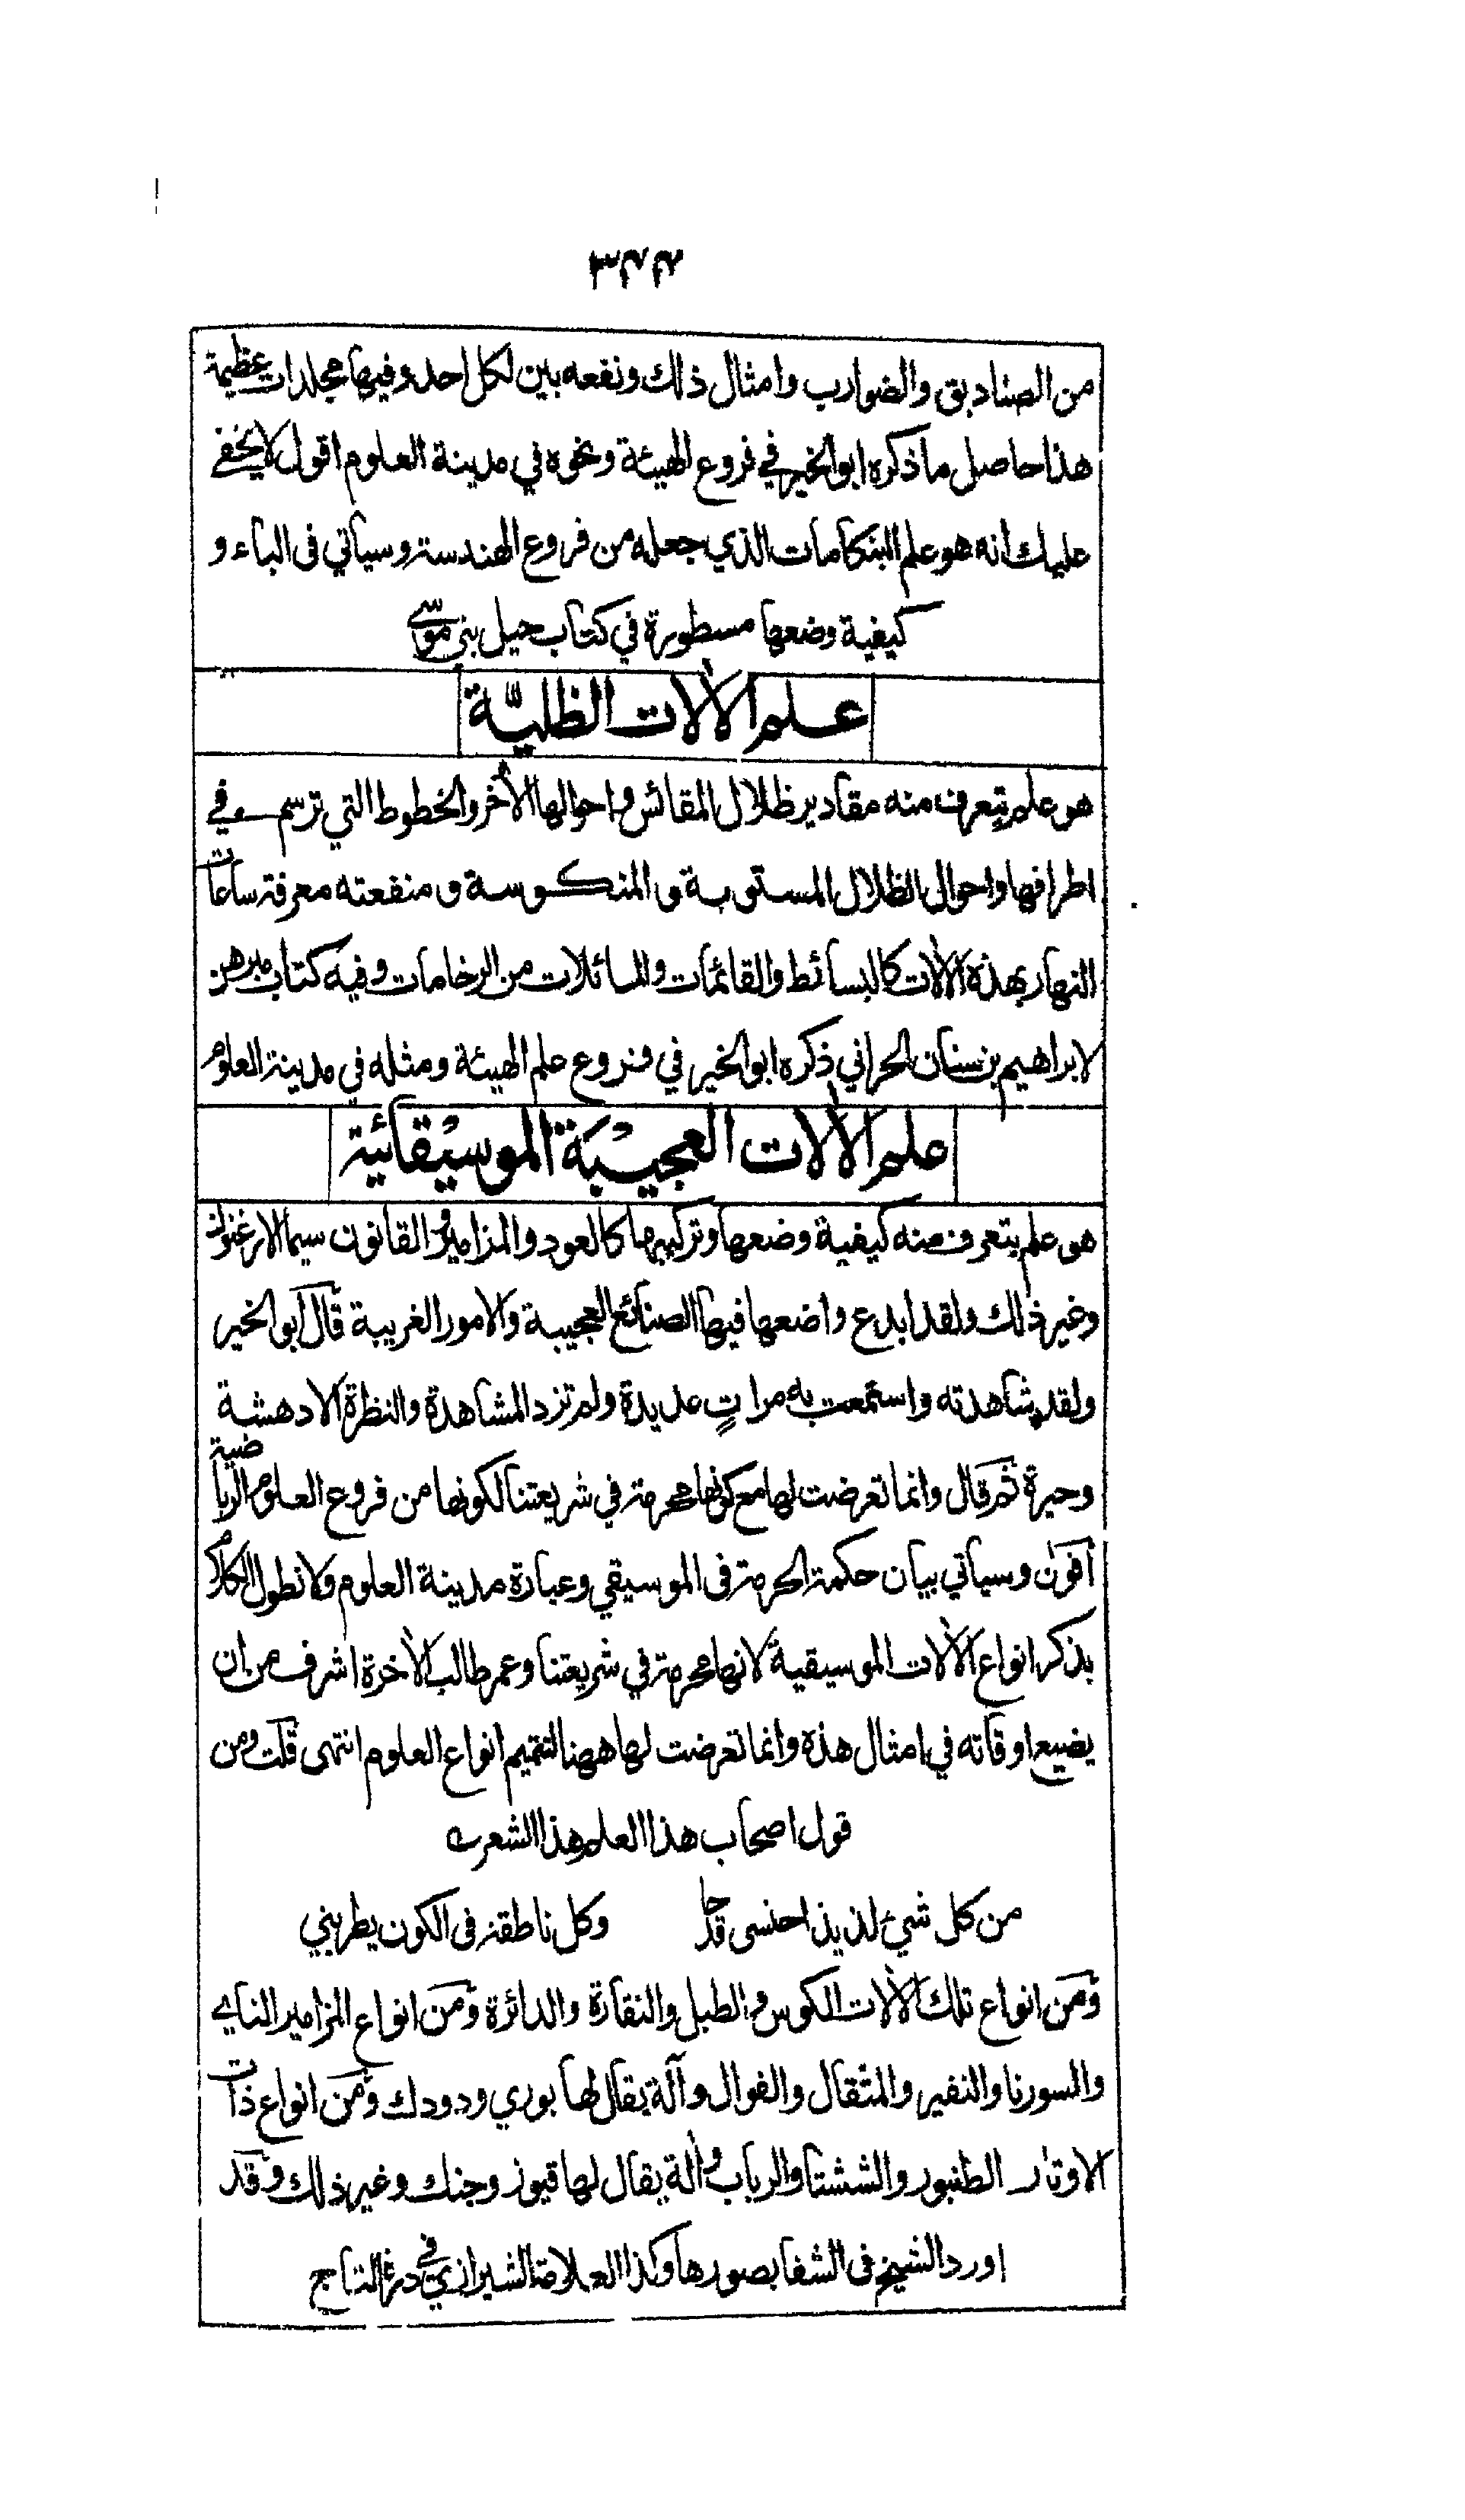 ٣٢٢
من الصناديق والضوارب وامثال ذلك ونفعه بين لكل احد وفيها مجلدات عظيمة
هذا حاصل ما ذكره ابو الخير في فروع الهيئة ونحوه في مدينة العلوم اقول لا يخفى
عليك انه هو علم البنكامات الذي جعله من فروع الهندسة وسياتي فى الباء و
كيفية وضعها مسطورة في كتاب حيل بني موسى
علم الآلات الظليّة
هو علم يتعرف منه مقادير ظلال المقائس واحوالها الأخر والخطوط التي ترسم في
اطرافها واحوال الظلال المستوية والمنكوسة ومنفعته معرفة ساعات
النهار بهذه الآلات كالبسائط والقائمات والمائلات من الرخامات وفيه كتاب مبرهن
لابراهيم بن سنان الحراني ذكره ابو الخير في فروع علم الهيئة ومثله في مدينة العلوم
علم الآلات العجيبة الموسيقائية
هو علم يتعرف منه كيفية وضعها وتركيبها كالعود والمزامير والقانون سيما الارغنون
وغير ذلك ولقد ابدع واضعها فيها الصنائع العجيبة والامور الغريبة قال ابو الخير
ولقد شاهدته واستمعت به مرات عديدة ولم تزد المشاهدة والنظرة الا دهشة
وحيرة ثم قال وانما تعرضت لها مع كونها محرمة في شريعتنا لكونها من فروع العلوم الرياضية
اقول وسياتي بيان حكمة الحرمة فى الموسيقي وعبارة مدينة العلوم ولا نطول الكلام
بذكر انواع الآلات الموسيقية لانها محرمة في شريعتنا وعمر طالب الآخرة اشرف من ان
يضيع اوقاته في امثال هذه وانما تعرضت لها ههنا لتتميم انواع العلوم انتهى قلت ومن
قول اصحاب هذا العلم هذا الشعر
من كل شيء لذيذ احتسى قدحا وكل ناطقة فى الكون يطربني
ومن انواع تلك الآلات الكوس والطبل والنقارة والدائرة ومن انواع المزامير الناي
والسورنا والنفير والمثقال والفوال وآلة يقال لها بوري ودودك ومن انواع ذات
الاوتار الطنبور والششتا والرباب وآلة يقال لها قيوز وجنك وغير ذلك وقد
اورد الشيخ فى الشفا بصورها وكذا العلامة الشيرازي في درة التاج